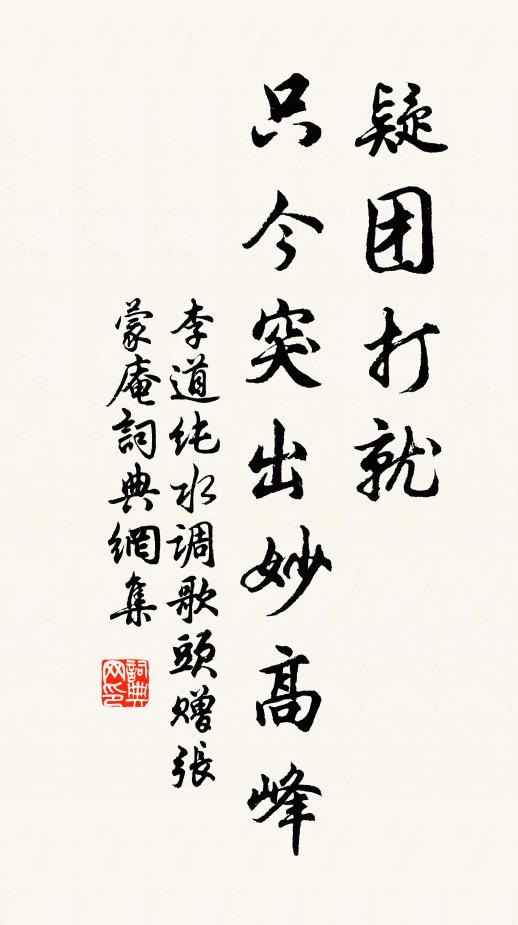 疑团打就
只今突出妙高峰
李道纯水调歌頭赠張
蒙庵詞典網集
詞典网印